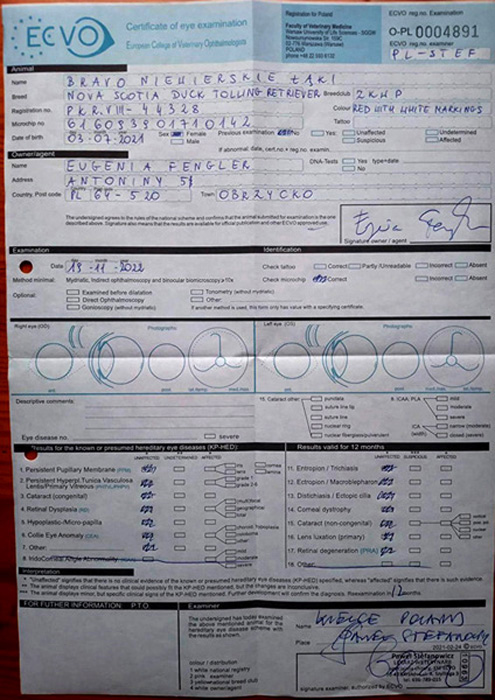 ECVO
Certificate of eye examination
European College of Veterinary Ophthalmologists
Registration for Poland
Faculty of Veterinary Medicine
Warsaw University of Life Sciences - SGGW
Nowoursynowska Str. 159C
02-776 Warsaw (Warsaw)
POLAND
ECVO reg.no. Examination
O-PL 0004891
ECVO reg.no. examiner
PL-STEF
Animal
Name BRAVO NIEMIERSKIE ŁĄKI
Breed NOVA SCOTIA DUCK TOLLING RETRIEVER Breedclub ZKWP
Registration no. PKR.VIII-44328 Colour RED WITH WHITE MARKINGS
Microchip no. 616093901710142 Tattoo
Date of birth 03-07-2021 Sex Female Male Previous examination No Yes: Unaffected Undetermined Suspicious Affected
If abnormal, date, cert.no.+ reg.no. exam.
Owner/agent
Name EUGENIA FENGLER DNA-Tests Yes type+date No
Address ANTONINY 51
Country, Post code PL 64-520 Town OBRZYCKO
The undersigned agrees to the rules of the national scheme and confirms that the animal submitted for examination is the one
described above. Signature also means that the results are available for official publication and other ECVO approved use.
Signature owner / agent
Examination Identification
Date 19-11-2022 Check tattoo Correct Partly /Unreadable Incorrect Absent
Method minimal: Mydriatic, Indirect ophthalmoscopy and binocular biomicroscopy ≥10x Check microchip Correct Incorrect Absent
Optional: Examined before dilatation Tonometry (without mydriatic)
Direct Ophthalmoscopy Other:
Gonioscopy (without mydriatic) If another method is used, this form only has value with a specifying certificate.
Right eye (OD) Photographs Left eye (OS) Photographs
Descriptive comments: 15. Cataract other punctata 8. ICAA, PLA mild
suture line tip moderate
suture line severe
nuclear ring ICA (width) narrow (moderate)
nuclear fiberglass/pulverulent closed (severe)
Eye disease no. severe
Results for the known or presumed hereditary eye diseases (KP-HED): Results valid for 12 months
UNAFFECTED UNDETERMINED AFFECTED UNAFFECTED SUSPICIOUS AFFECTED
1. Persistent Pupillary Membrane (PPM) iris cornea lens lamina 11. Entropion / Trichiasis
2. Persistent Hyperpl.Tunica Vasculosa Lentis/Primary Vitreous (PHTVL/PHPV) grade 1 grade 2-6 12. Ectropion / Macroblepharon
3. Cataract (congenital) 13. Distichiasis / Ectopic cilia
4. Retinal Dysplasia (RD) (multi)focal geographical total 14. Corneal dystrophy
5. Hypoplastic-/Micro-papilla 15. Cataract (non-congenital)
6. Collie Eye Anomaly (CEA) choroid. hypoplasia coloboma other 16. Lens luxation (primary)
7. Other: 17. Retinal degeneration (PRA)
8. IridoCorneal Angle Abnormality (ICAA) mild moderate severe 18. Other:
Interpretation
* "Unaffected" signifies that there is no clinical evidence of the known or presumed hereditary eye disease(s) (KP-HED) specified, whereas "affected" signifies that there is such evidence.
** The animal displays clinical features that could possibly fit the KP-HED mentioned, but the changes are inconclusive.
*** The animal displays minor, but specific clinical signs of the KP-HED mentioned. Further development will confirm the diagnosis. Reexamination in 12 months.
FOR FUTHER INFORMATION P.T.O Examiner
The undersigned has today examined
the above mentioned animal for the
hereditary eye disease scheme with
the results as shown.
Name
Place
POLAND
2021-02-24 © ECVO
colour / distribution
1 white national registry
2 pink examiner
3 yellow national breed club
4 white owner/agent
Paweł Stefanowicz
signature examiner, authorized by ECVO